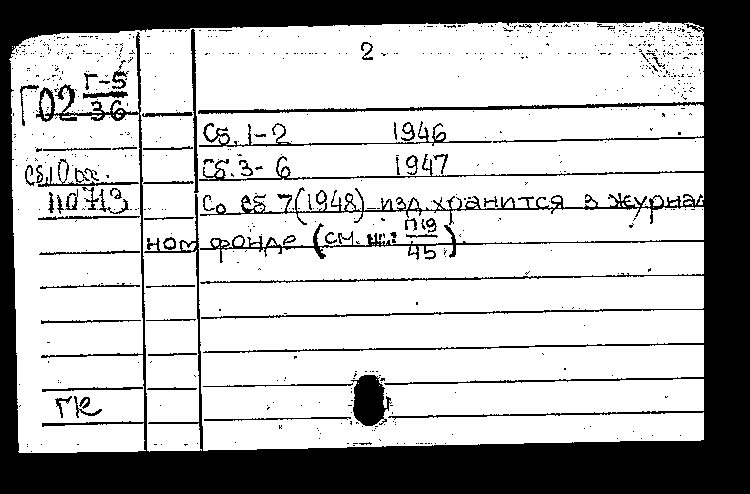 2
Г02 Г-5/36
Сб. 1-2 1946
Сб. 3-6 1947
Сб. 10
110713
Со сб. 7 (1948) изд. хранится в журнал
ном фонде (см. П19/45).
ГК